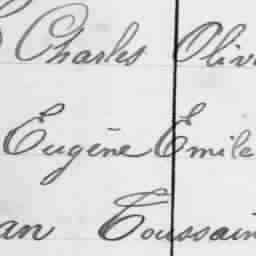 Charles Oliv
Eugène Emile
an Toussain